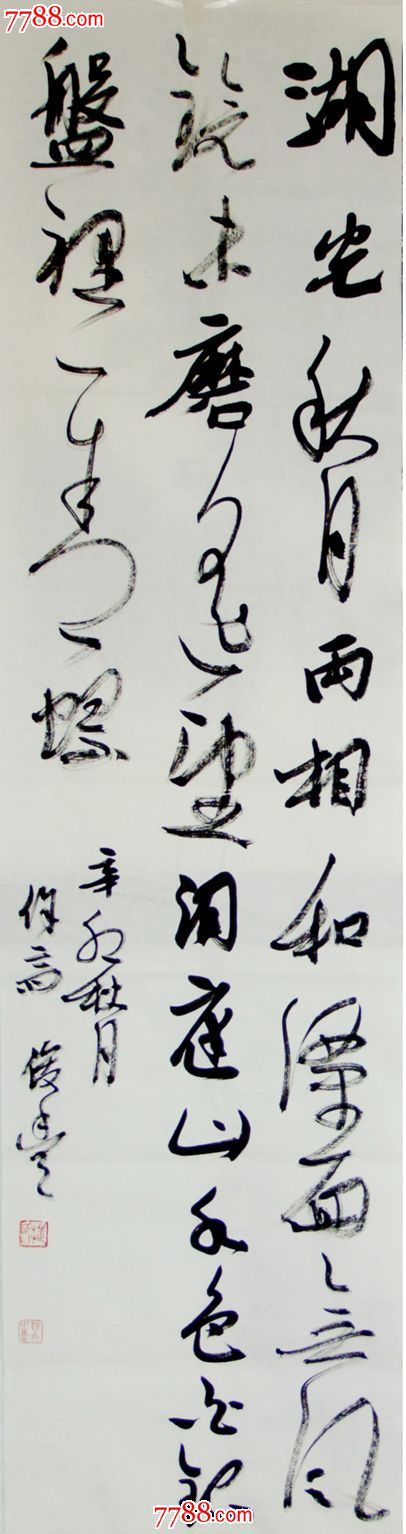 7788.com
湖光秋月兩相和潭面無風
鏡未磨遙望洞庭山水色白銀
盤裡一青螺
辛卯秋月
7788.com